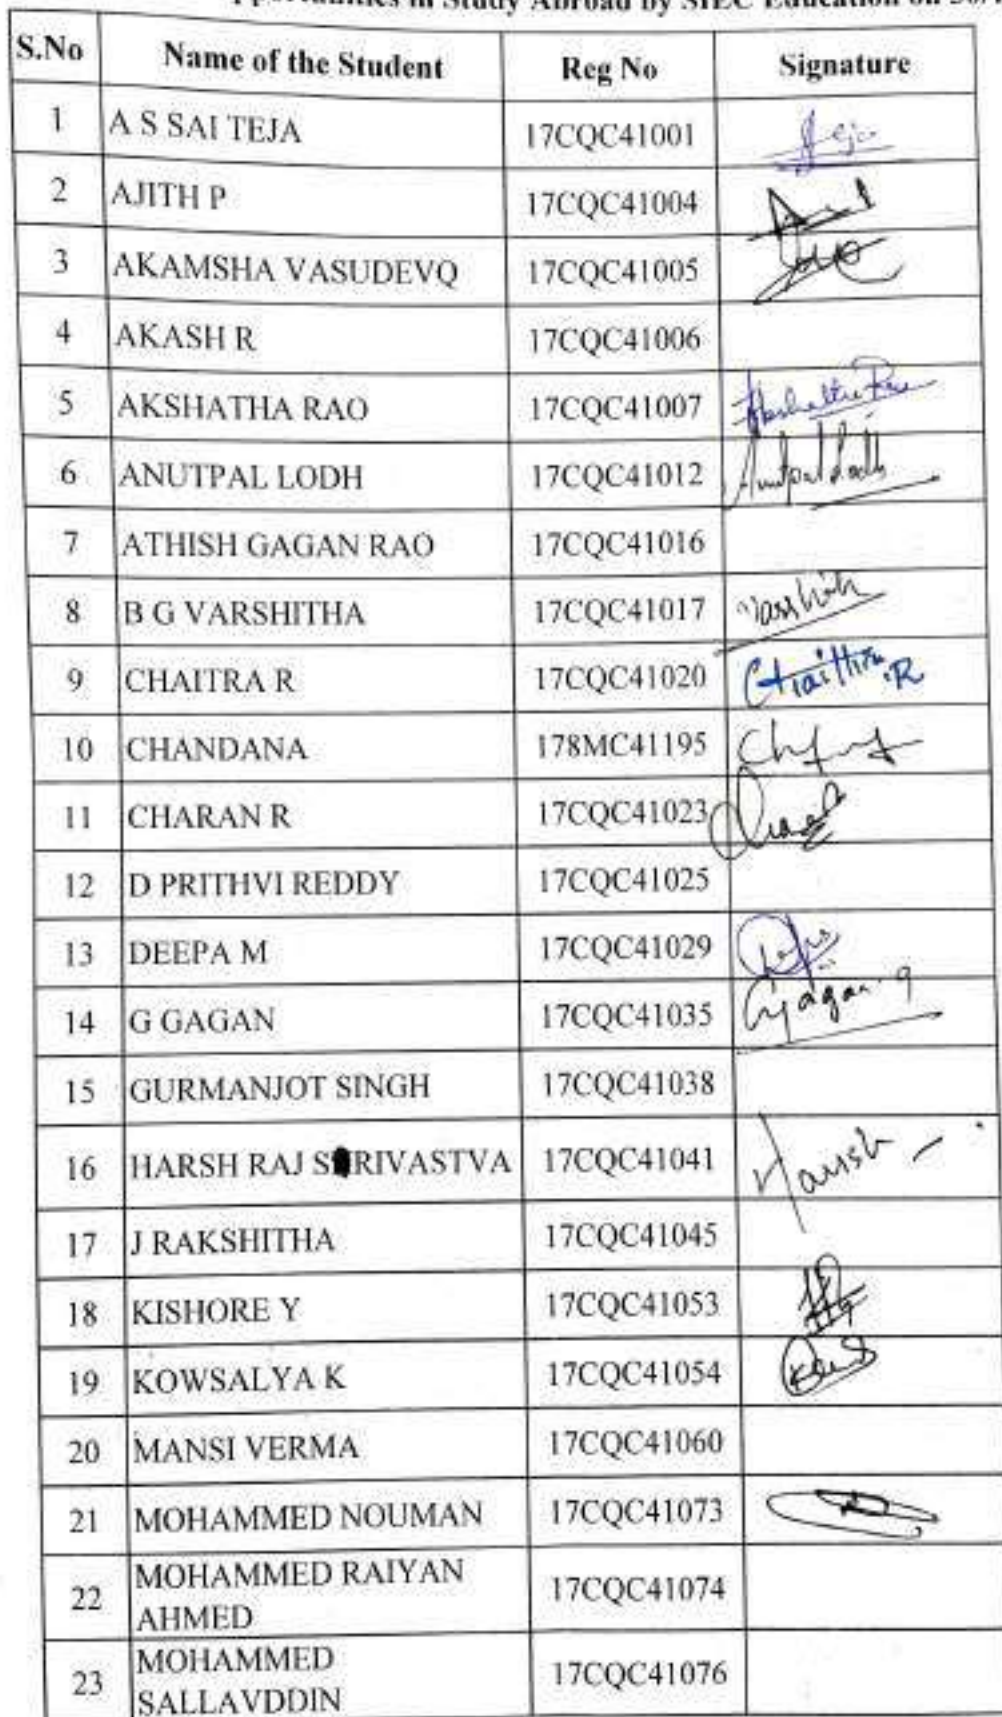 pportunities in Study Abroad by SIEC Education on 30/
S.No Name of the Student Reg No Signature
1 A S SAI TEJA 17CQC41001 Teja
2 AJITH P 17CQC41004
3 AKAMSHA VASUDEVQ 17CQC41005
4 AKASH R 17CQC41006
5 AKSHATHA RAO 17CQC41007 Akshatha Rao
6 ANUTPAL LODH 17CQC41012 Anutpal Lodh
7 ATHISH GAGAN RAO 17CQC41016
8 B G VARSHITHA 17CQC41017
9 CHAITRA R 17CQC41020 Chaithra .R
10 CHANDANA 178MC41195
11 CHARAN R 17CQC41023
12 D PRITHVI REDDY 17CQC41025
13 DEEPA M 17CQC41029
14 G GAGAN 17CQC41035 Gagan.g
15 GURMANJOT SINGH 17CQC41038
16 HARSH RAJ SRIVASTVA 17CQC41041
17 J RAKSHITHA 17CQC41045
18 KISHORE Y 17CQC41053
19 KOWSALYA K 17CQC41054
20 MANSI VERMA 17CQC41060
21 MOHAMMED NOUMAN 17CQC41073
22 MOHAMMED RAIYAN
AHMED 17CQC41074
23 MOHAMMED
SALLAVDDIN 17CQC41076